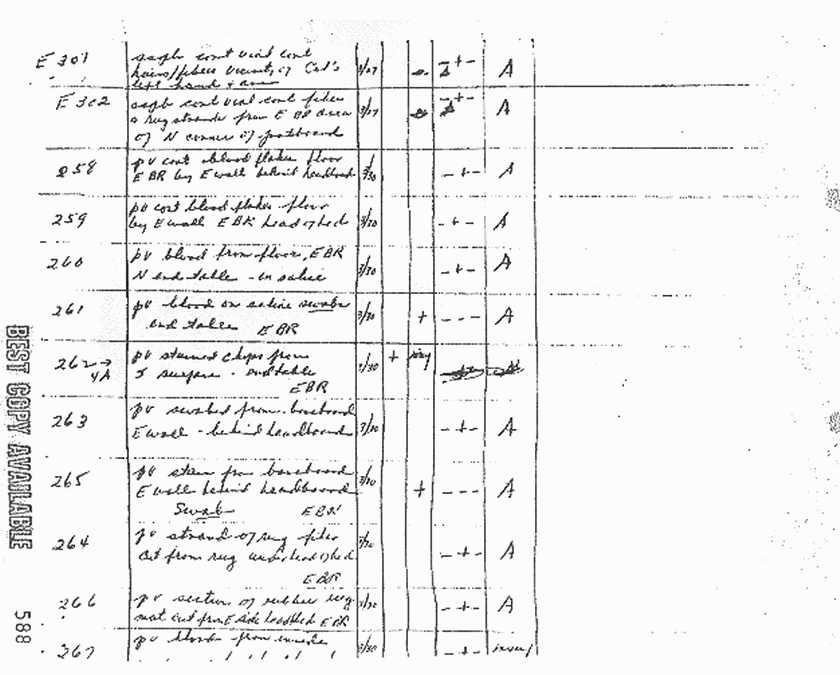 E 301 cont vial cont
hairs/fibers vicinity of Col's 3/27 + - A
left hand + arm
E 302 cont vial cont fiber + -
& rug strands from E BR area 3/27 A
of N corner of footboard
258 pv cont blood flakes floor
E BR by E wall behind headboard 3/30 - + - A
259 pv cont blood flakes floor
by E wall EBR head of bed 3/30 - + - A
260 pv blood from floor, EBR
N end table - in saline 3/30 - + - A
261 pv blood on saline swabs 3/30 + - - - A
end table EBR
262 → pv stained chips from +
4A S surface - end table 3/30
EBR
263 pv swabed from baseboard
E wall - behind headboard 3/30 - + - A
265 pv stain from baseboard 3/30
E wall behind headboard + - - - A
Swab EBR
264 pv strand of rug fiber 3/30
cut from rug under head of bed - + - A
EBR
266 pv section of rubber rug 3/30 - + - A
mat cut from E side EBR
267 pv blood from inside 3/30 - + -
BEST COPY AVAILABLE
588